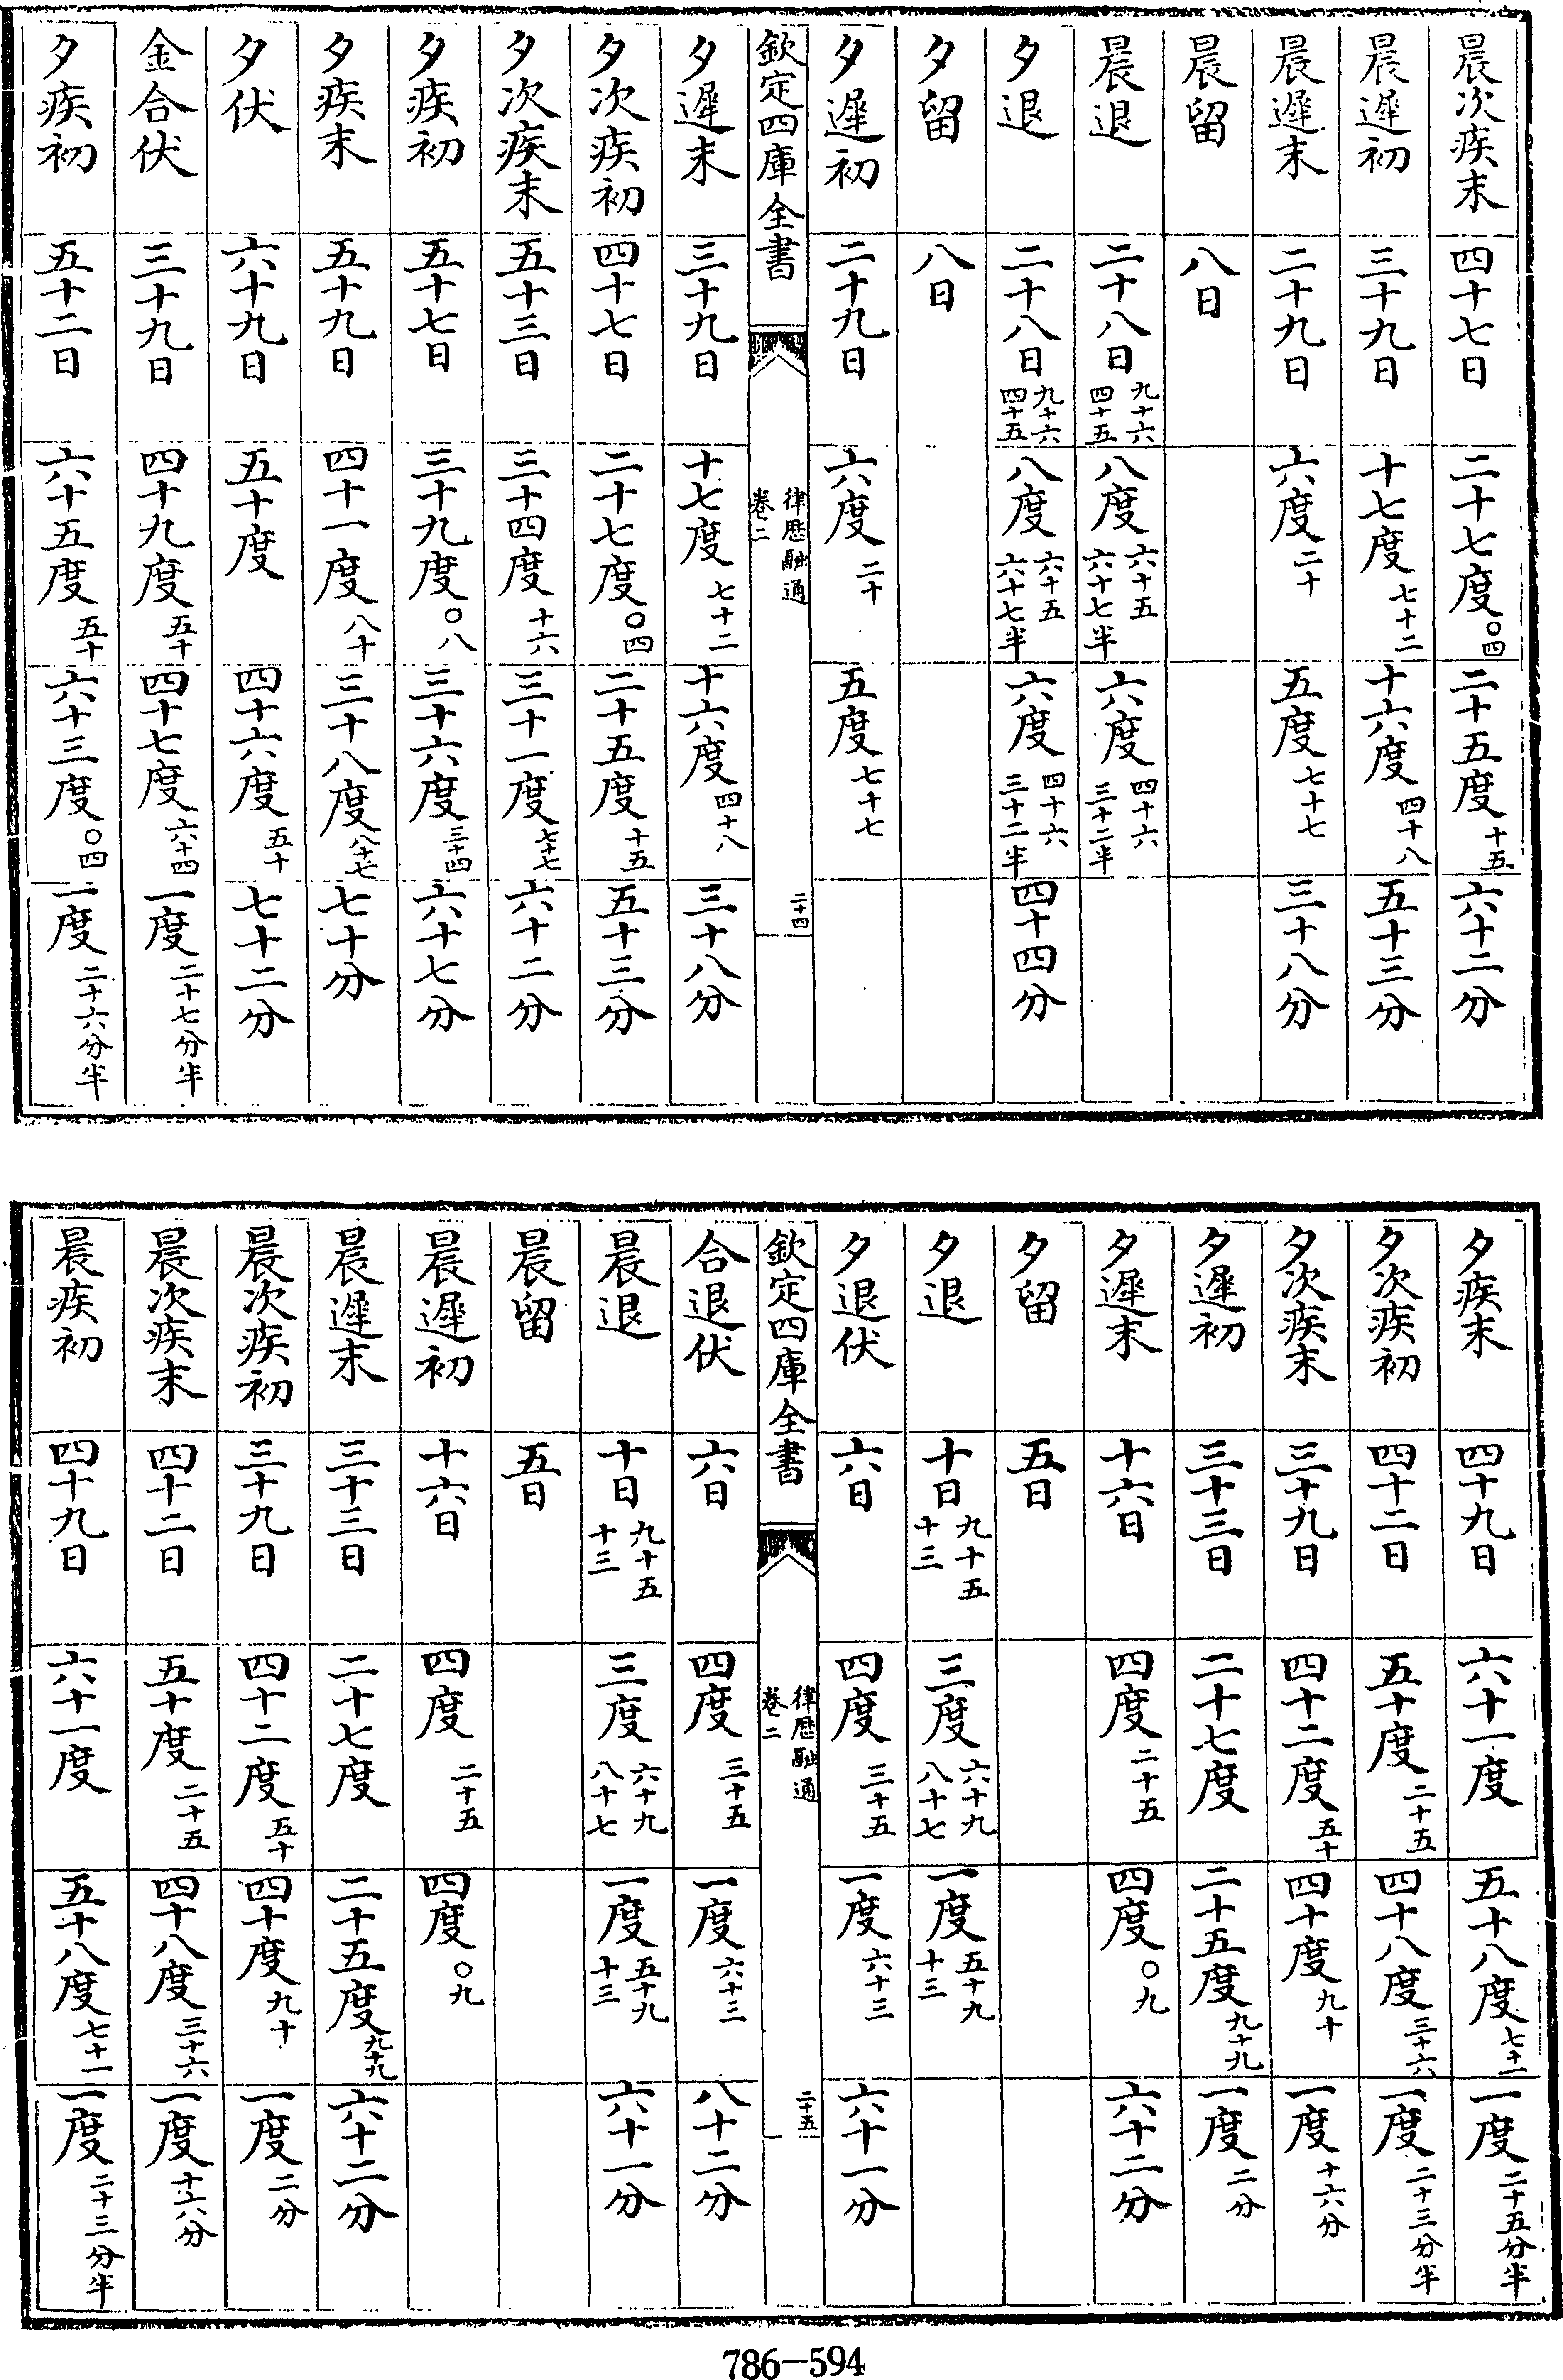 晨次疾末 四十七日 二十七度〇四 二十五度十五 六十二分
晨遲初 三十九日 十七度七十二 十六度四十八 五十三分
晨遲末 二十九日 六度二十 五度七十七 三十八分
晨留 八日
晨退 二十八日九十六四十五 八度六十五六十七半 六度四十六三十二半
夕退 二十八日九十六四十五 八度六十五六十七半 六度四十六三十二半 四十四分
夕留 八日
夕遲初 二十九日 六度二十 五度七十七
欽定四庫全書 律歷融通卷二 二十四
夕遲末 三十九日 十七度七十二 十六度四十八 三十八分
夕次疾初 四十七日 二十七度〇四 二十五度十五 五十三分
夕次疾末 五十三日 三十四度十六 三十一度七十七 六十二分
夕疾初 五十七日 三十九度〇八 三十六度三十四 六十七分
夕疾末 五十九日 四十一度八十 三十八度八十七 七十分
夕伏 六十九日 五十度 四十六度五十 七十二分
金合伏 三十九日 四十九度五十 四十七度六十四 一度二十七分半
夕疾初 五十二日 六十五度五十 六十三度〇四 一度二十六分半
夕疾末 四十九日 六十一度 五十八度七十一 一度二十五分半
夕次疾初 四十二日 五十度二十五 四十八度三十六 一度二十三分半
夕次疾末 三十九日 四十二度五十 四十度九十 一度十六分
夕遲初 三十三日 二十七度 二十五度九十九 一度二分
夕遲末 十六日 四度二十五 四度〇九 六十二分
夕留 五日
夕退 十日九十五十三 三度六十九八十七 一度五十九十三
夕退伏 六日 四度三十五 一度六十三 六十一分
欽定四庫全書 律歷融通卷二 二十五
合退伏 六日 四度三十五 一度六十三 八十二分
晨退 十日九十五十三 三度六十九八十七 一度五十九十三 六十一分
晨留 五日
晨遲初 十六日 四度二十五 四度〇九
晨遲末 三十三日 二十七度 二十五度九十九 六十二分
晨次疾初 三十九日 四十二度五十 四十度九十 一度二分
晨次疾末 四十二日 五十度二十五 四十八度三十六 一度十六分
晨疾初 四十九日 六十一度 五十八度七十一 一度二十三分半
786-594